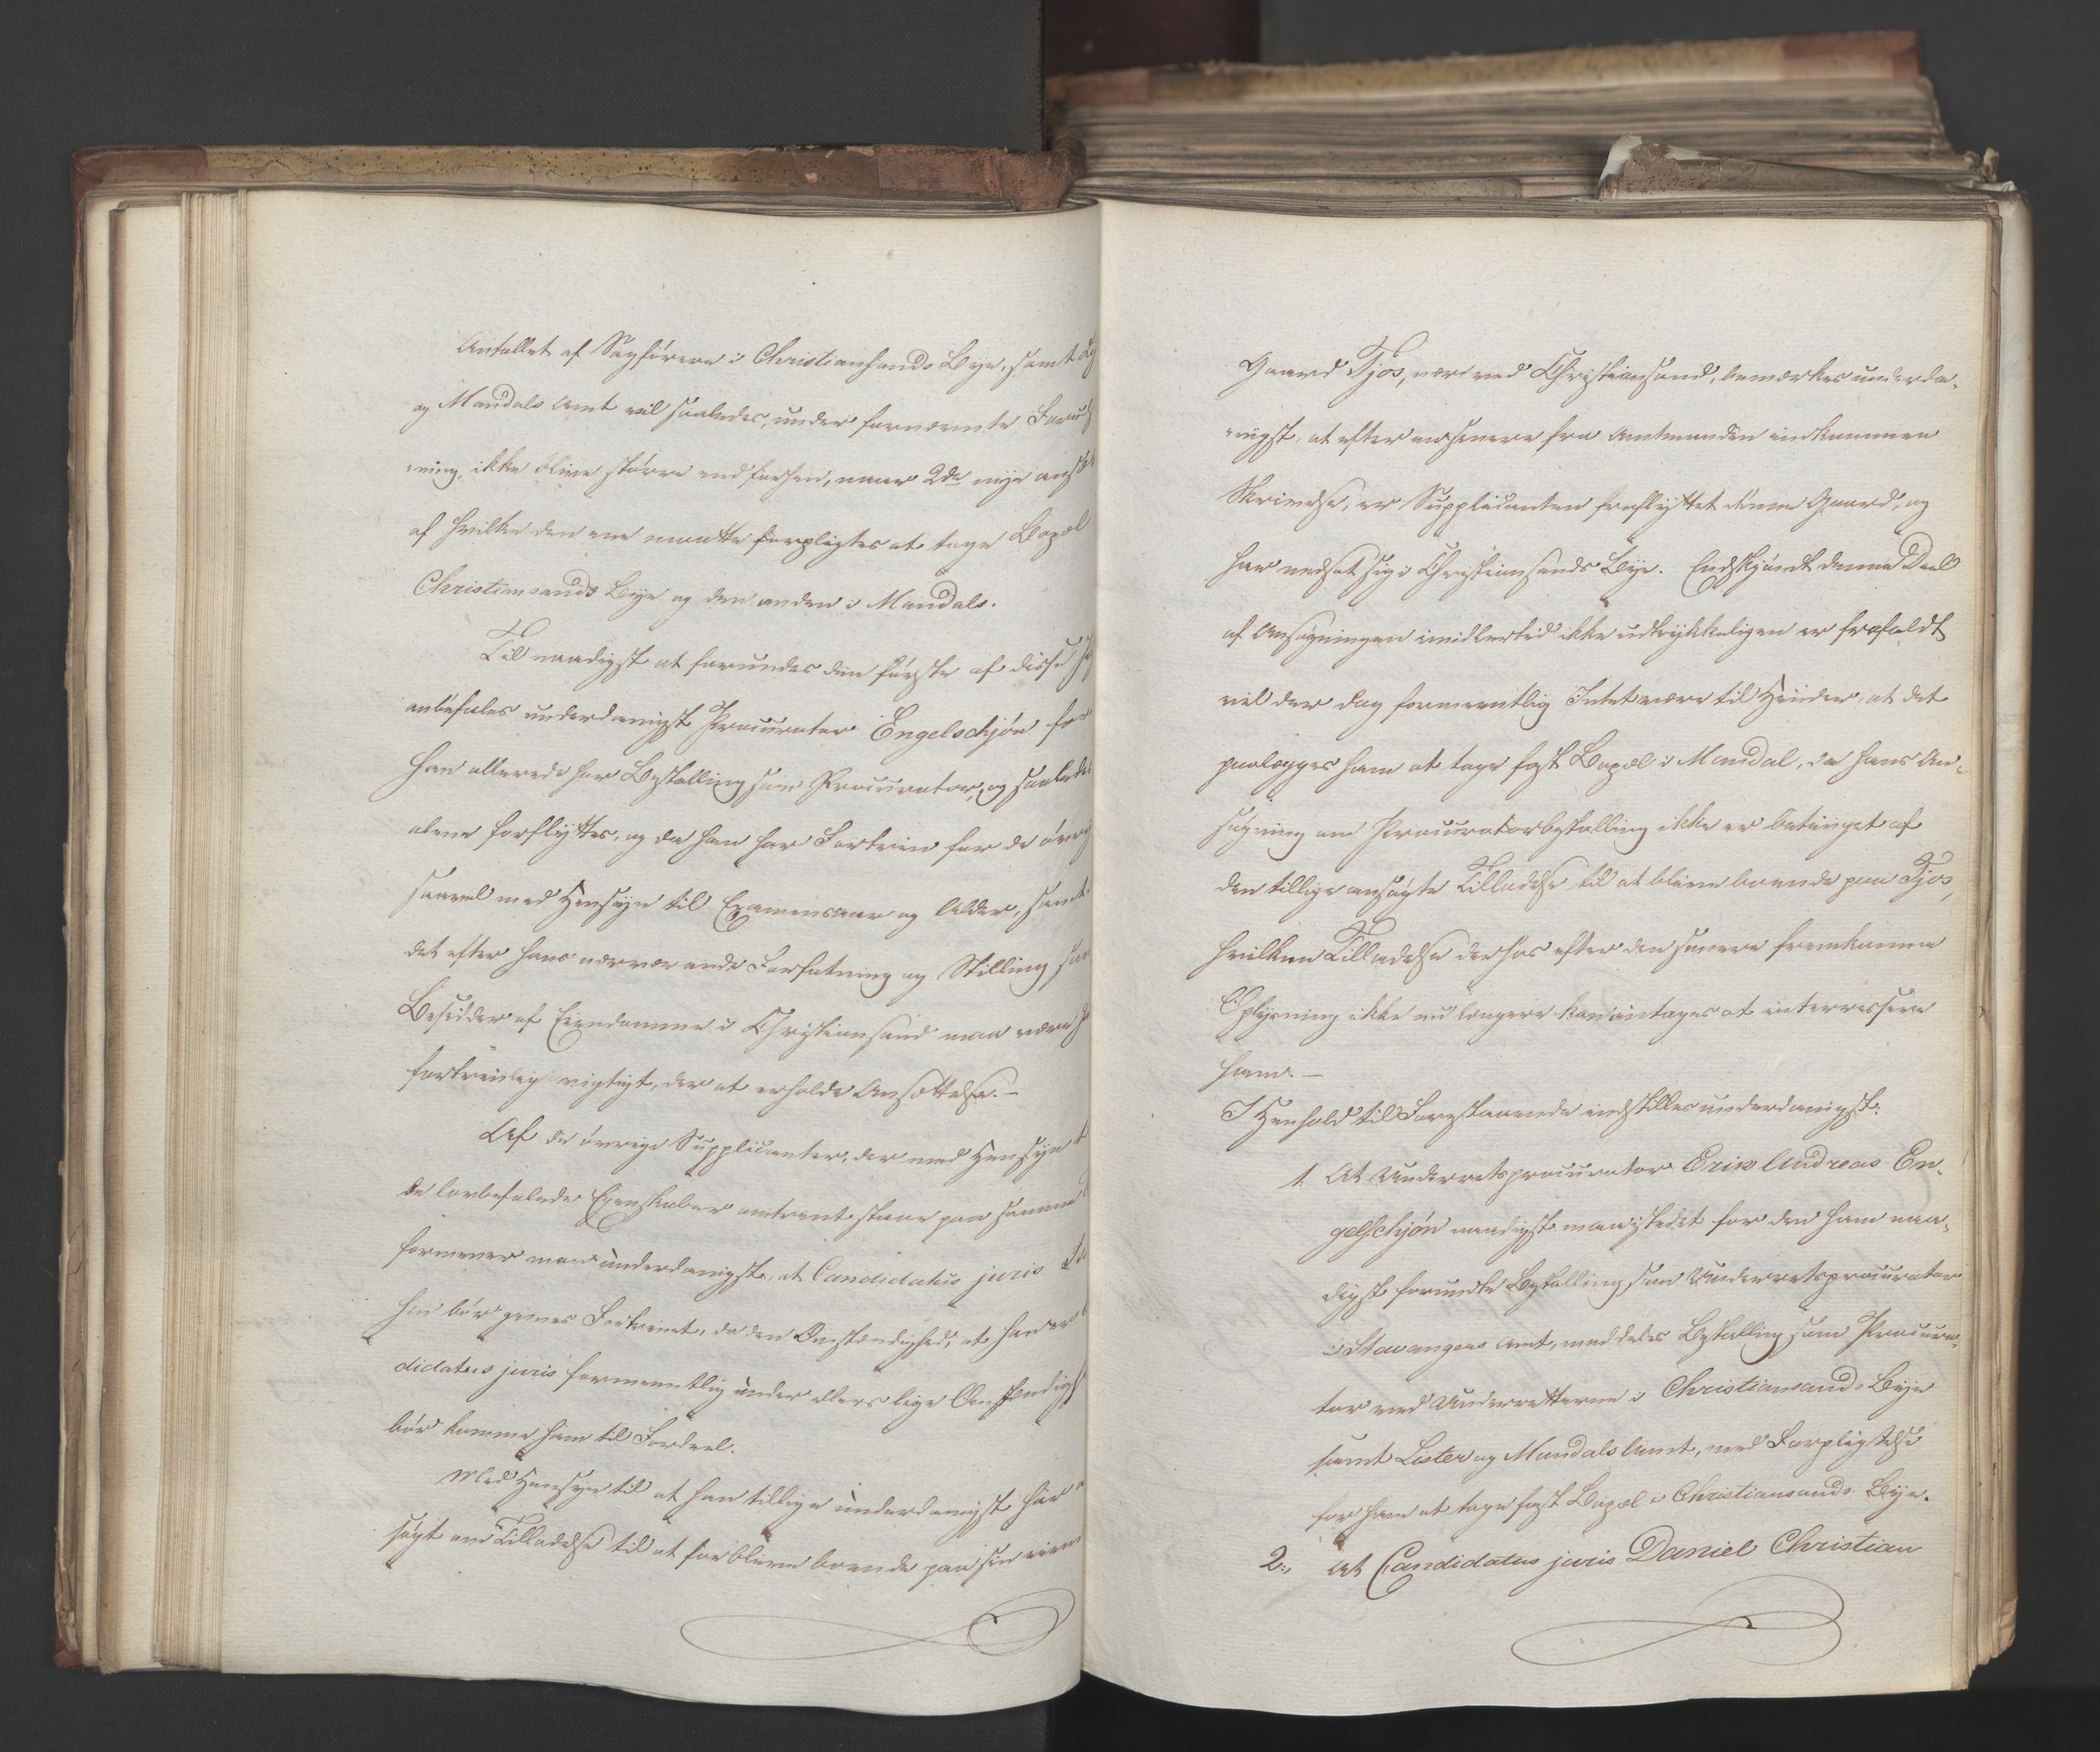 Antallet af Sagførere i Christianssands Bye, samt
og Mandals Amt vil saaledes, under fornævnte
-ning, ikke blive større end forhen, naar 2de nye
af hvilke den ene maatte forpligtes at tage Bopæl
Christianssands Bye og den anden i Mandals.
Til naadigst at forundes den første af disse
anbefales underdanigst Procurator Engelschjøn
han allerede har Bestalling som Procurator, og saaledes
alene forflyttes, og da han har Fortrin for de
saavel med Hensyn til Examensaar og Alder, samt
det efter hans nærværende Forfatning og Stilling
Besidder af Eiendomme i Christianssand maa være
fortrinlig vigtigt, der at erholde Ansættelse. —
Af de øvrige Supplicanter, der med Hensyn
de lovbefalede Egenskaber omtrent staae paa samme
formener man underdanigst, at Candidatus juris
han bør gives Fortrinet, da den Omstændighed, at han er
didatus juris formeentlig under ellers lige
bør komme ham til Fordeel.
Med Hensyn til at han tillige underdanigst har
søgt om Tilladelse til at forblive boende paa sin
Gaard Tjos, nær ved Christianssand, bemærkes underda-
-nigst, at efter en senere fra Amtmanden indkommen
Skrivelse, er Supplicanten fraflyttet denne Gaard, og
har nedsat sig i Christianssands Bye. Endskjøndt denne Deel
af Ansøgningen imidlertid ikke udtrykkeligen er frafaldt
vil der dog formeentlig Intet være til Hinder, at det
paalægges ham at tage fast Bopæl i Mandal, da hans An-
søgning om Procuratorbestalling ikke er betinget af
den tillige ansøgte Tilladelse til at blive boende paa Tjos,
hvilken Tilladelse derhos efter den senere fremkomne
Oplysning ikke nu længere kan antages at interessere
ham. —
I Henhold til Forestaaende indstilles underdanigst:
1. At Underretsprocurator Erik Andreas En-
gelschjøn naadigst maa istedet for den ham naa-
digst forundte Bestalling som Underretsprocurator
i Stavangers Amt, meddeles Bestalling som Procura-
tor ved Underretterne i Christiansands Bye
samt Lister og Mandals Amt, med Forpligtelse
for ham at tage fast Bopæl i Christiansands Bye.
2., At Candidatus juris Daniel Christian